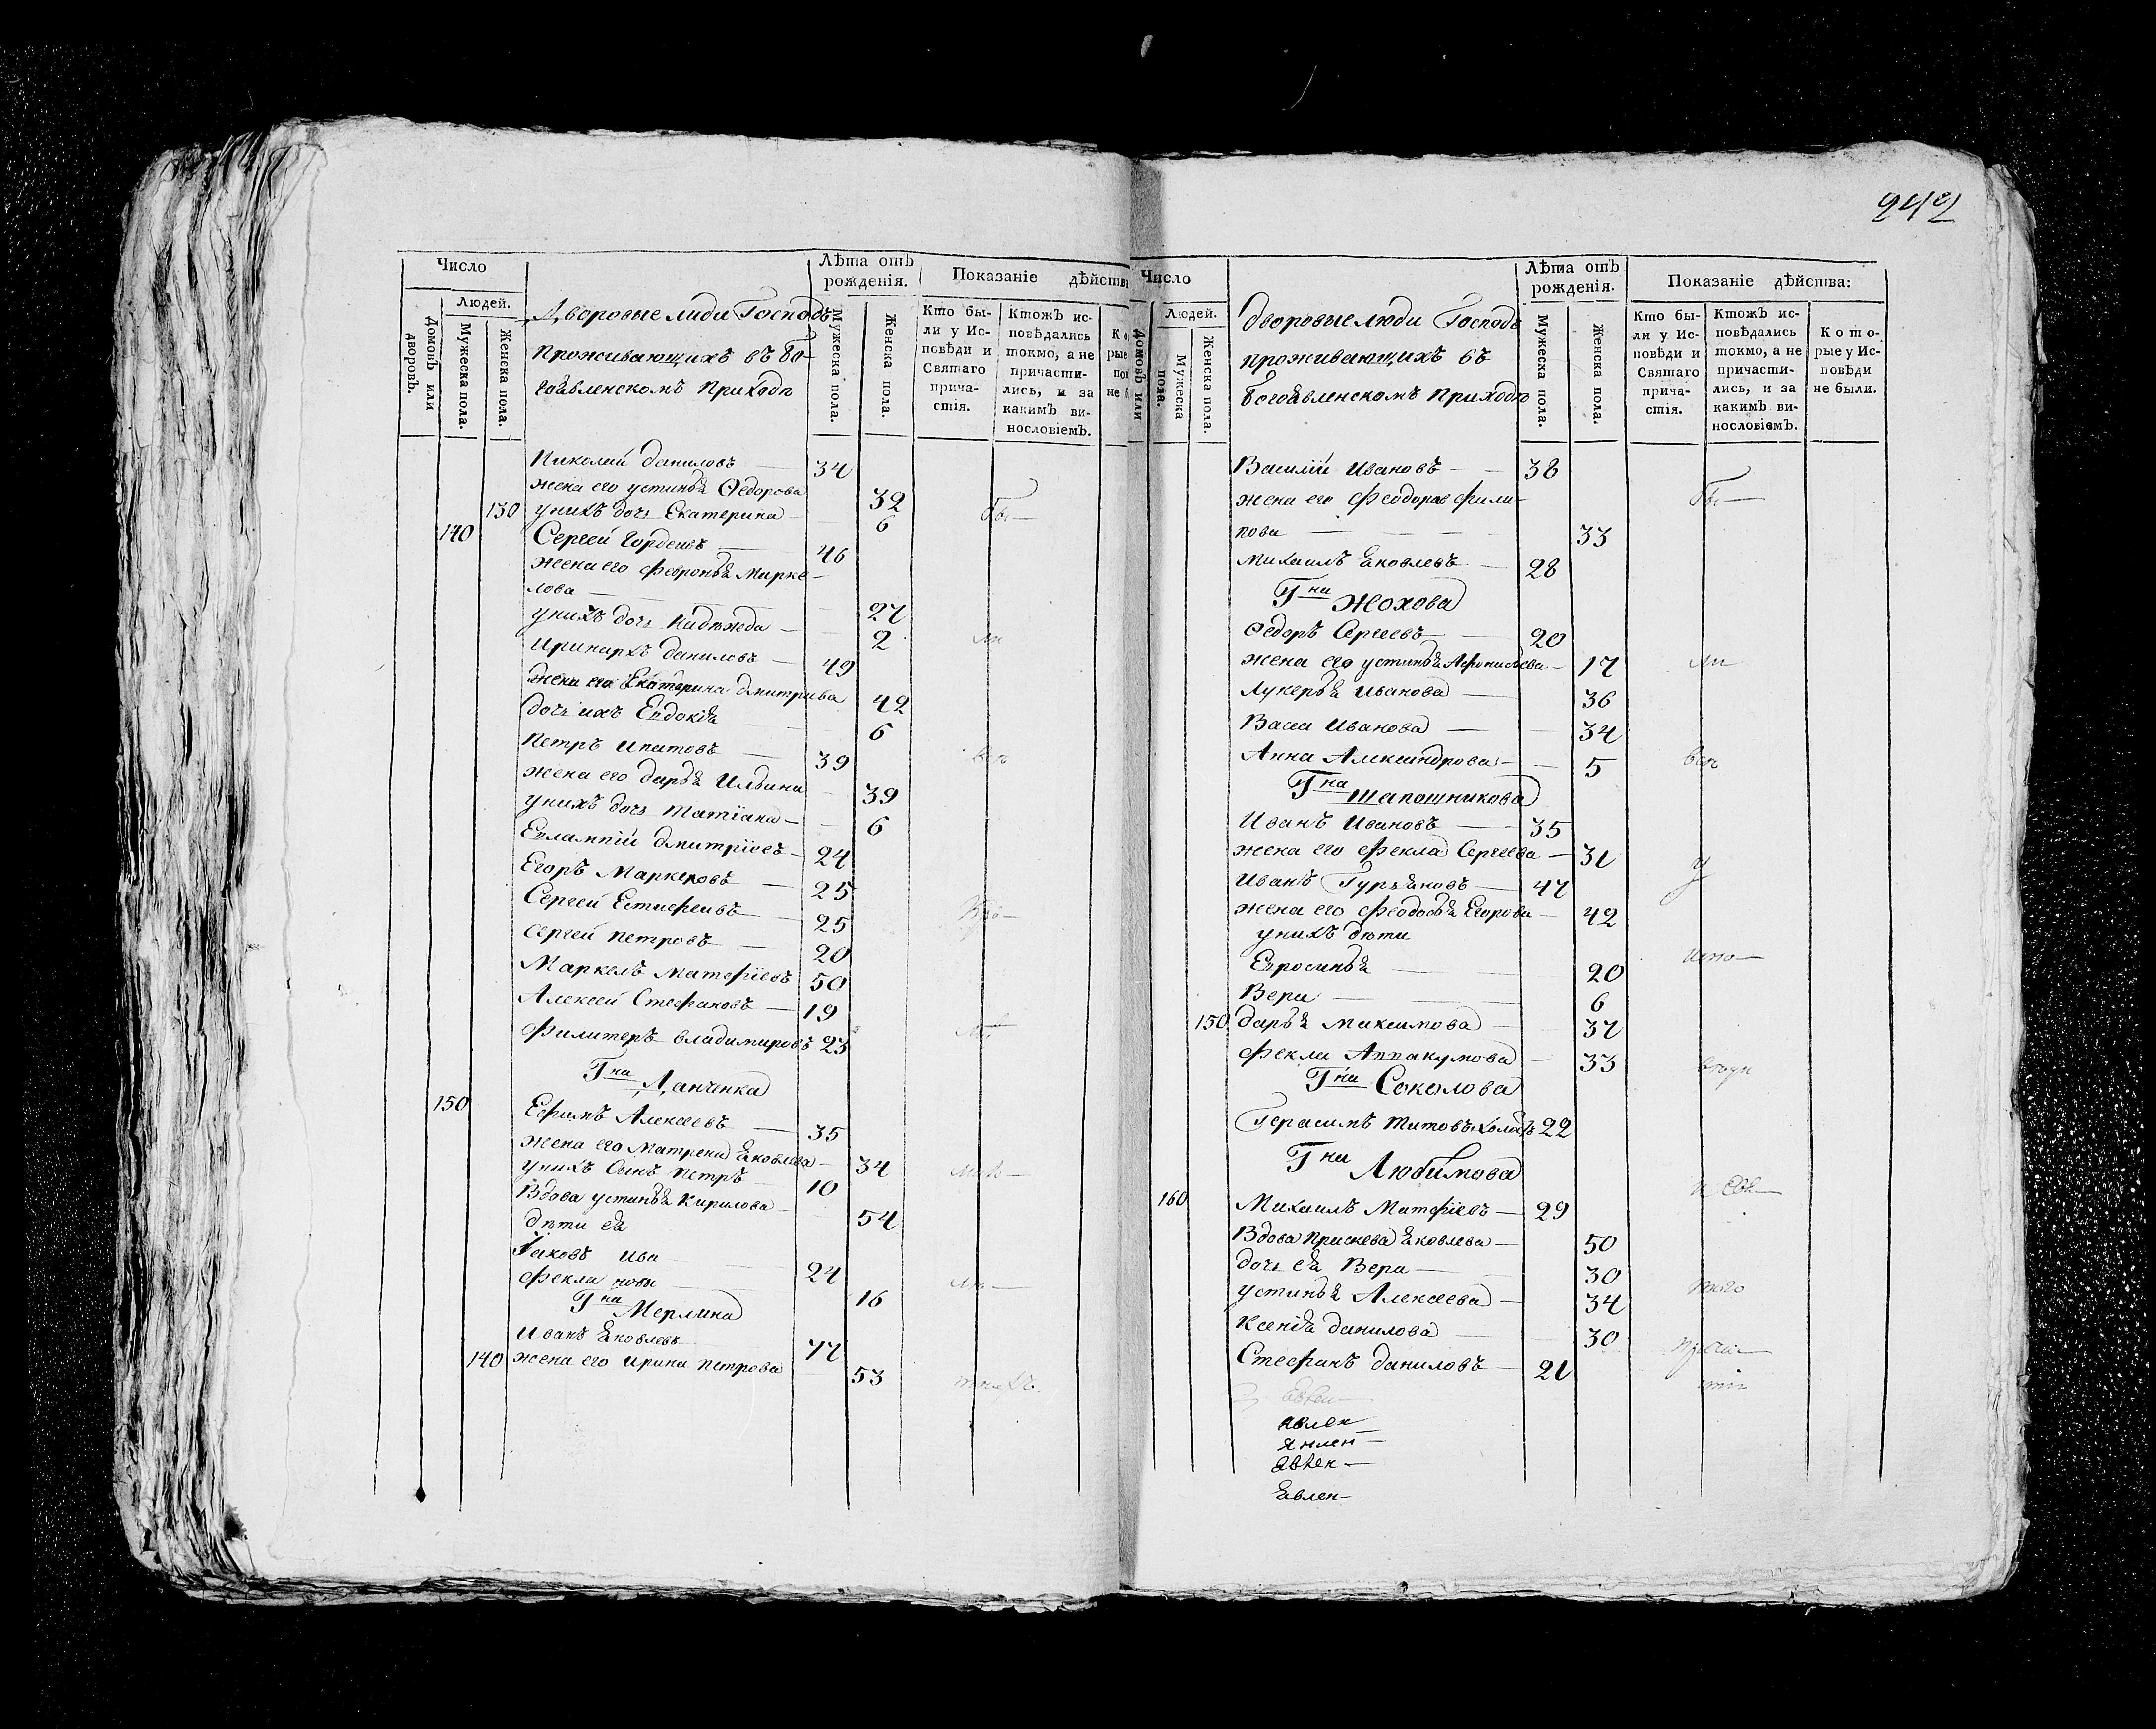 Число
Людей.
Домовъ или дворовъ.
Мужеска пола.
Женска пола.
Дворовые люди Господъ
проживающихъ въ Бо-
гоявленскомъ Приходѣ
Лѣта отъ рожденія.
Мужеска пола.
Женска пола.
Показаніе дѣйства
Кто бы-
ли у Ис-
повѣди и
Святаго
прича-
стія.
Ктожъ ис-
повѣдались
токмо, а не
причасти-
лись, и за
какимъ ви-
нословіемъ.
Николай даниловъ — 34
жена его устинья Ѳедорова 32
130 унихъ дочь Екатерина — 6 бы—
140 Сергей Гордеивъ — 46
жена его Февронья Марке-
лова — 27
унихъ дочь Надежда — 2 ли
Иринархъ даниловъ — 49
жена его Екатерина дмитрива 42
дочь ихъ Евдокія 6
Петръ Ипатовъ — 39 все
жена его дарья Ильина 39
унихъ дочь Татіана — 6
Евлампій дмитріевъ — 24
Егоръ Маркеловъ — 25
Сергей Естифеивъ 25
Сергей Петровъ — 20
Маркелъ Матфіевъ 50
Алексей Стефановъ — 19
Филитеръ владимировъ 23
Гна Данченка
150 Ефимъ Алексеевъ — 35
жена его Матрена Яковлева — 34
унихъ Сынъ Петръ 10
Вдова устинья Кирилова — 54
дѣти ея
Іяковъ Ива 24
Фекла новы 16
Гна Мерлина
Иванъ Яковлевъ 77
140 жена его Ирина Петрова 53
242
Число
Людей.
Домовъ или
Мужеска пола.
Женска пола.
дворовые люди Господъ
проживающихъ въ
Богоявленскомъ Приходѣ
Лѣта отъ рожденія.
Мужеска пола.
Женска пола.
Показаніе дѣйства:
Кто бы-
ли у Ис-
повѣди и
Святаго
прича-
стія.
Ктожъ ис-
повѣдались
токмо, а не
причасти-
лись, и за
какимъ ви-
нословіемъ.
Кото-
рые у Ис-
повѣди
не были.
Василій Ивановъ — 38
жена его Феодора Фили- бы—
пова — 33
Михаилъ Яковлевъ — 28
Гна Жохова
Ѳедоръ Сергеевъ — 20
жена его устинья Афонисьева — 17 ли
Лукерья Иванова — 36
Васса Иванова — 34
Анна Александрова — 5 все
Гна Шапошникова
Иванъ Ивановъ — 35
жена его Фекла Сергеева — 31 у
Иванъ Гурьяновъ — 47
жена его Феодосья Егорова — 42
унихъ дѣти
Евросинья — 20 испо—
Вера — 6
150 дарья Максимова — 37
Фекла Аввакумова — 33
Гна Соколова
Герасимъ Титовъ холостъ 22
Гна Любимова
160 Михаилъ Матфіевъ — 29
Вдова Прасковa Яковлева — 50
дочь ея Вера — 30
устинья Алексеева — 34
Ксенія данилова — 30
Стефанъ даниловъ — 21
явлен
явлен—
явлен—
явлен—